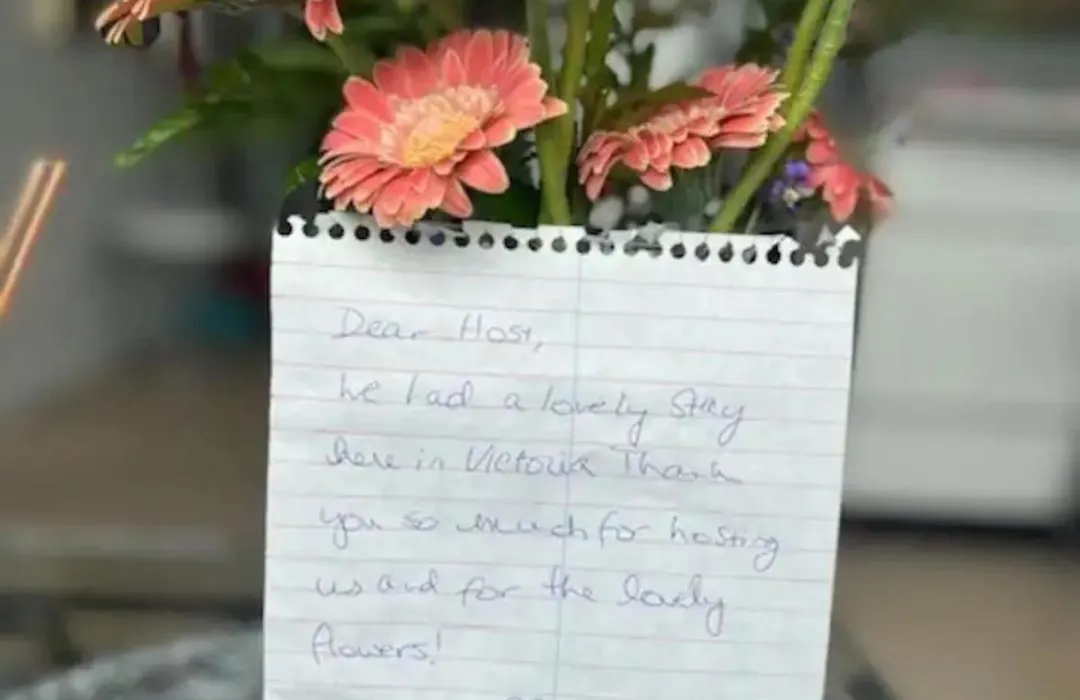 Dear Host,
We had a lovely stay
here in Victoria Thank
you so much for hosting
us and for the lovely
flowers!